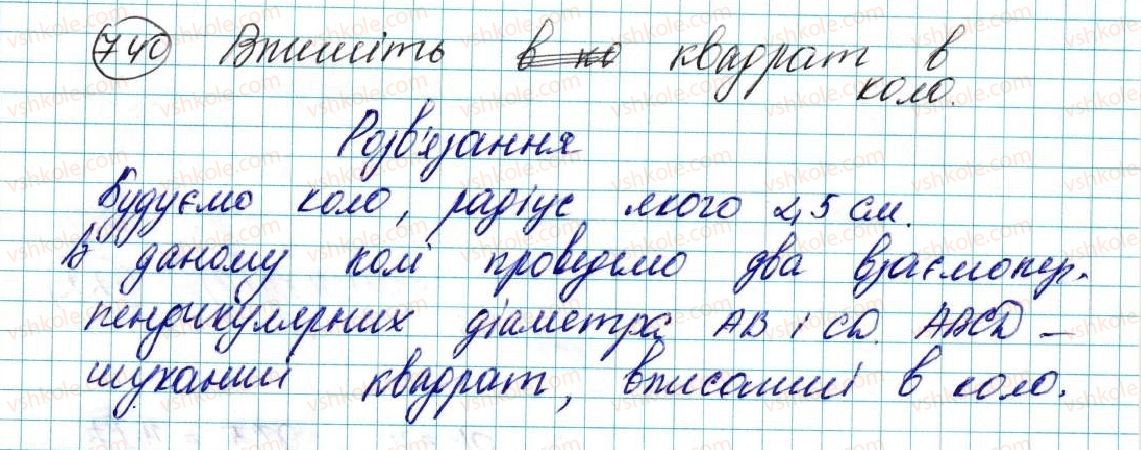 740 Впишіть квадрат в
коло.
Розв'язання
Будуємо коло, радіус якого 2,5 см.
В даному колі проведемо два взаємопер-
пендикулярних діаметра AB і CD. ABCD –
шуканий квадрат, вписаний в коло.